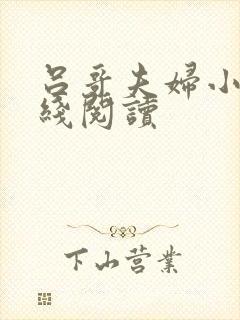 吕哥夫婦小
綫閱讀
下山营業